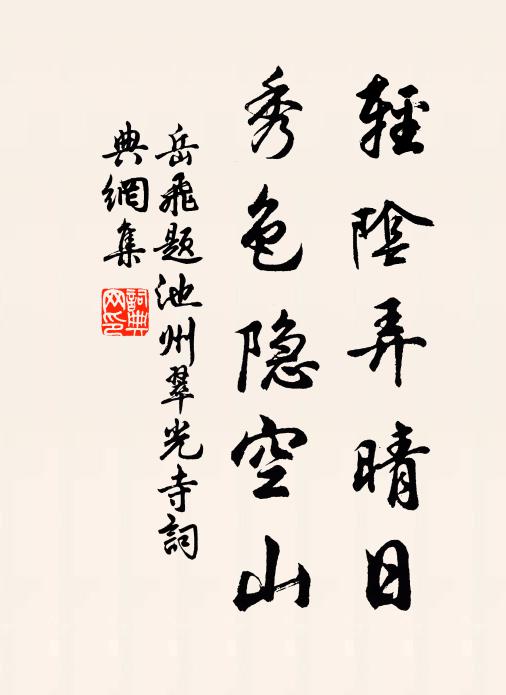 輕陰弄晴日
秀色隐空山
岳飛題池州翠光寺詞
典網集
詞典
网印